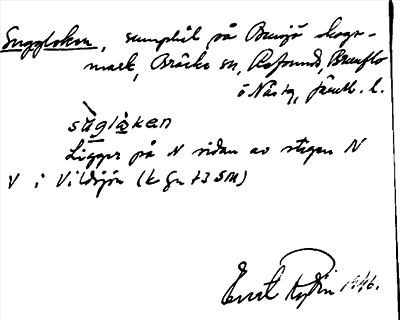 Suggloken, sumphål på Bensjö skogs-
mark, Bräcke sn, Refsunds, Brunflo
o Näs tg, Jämtl. l.
sùglåkan
Ligger på N sidan av stigen N
V i Vildsjön (k gn 73 SM)
Ernst 1946.